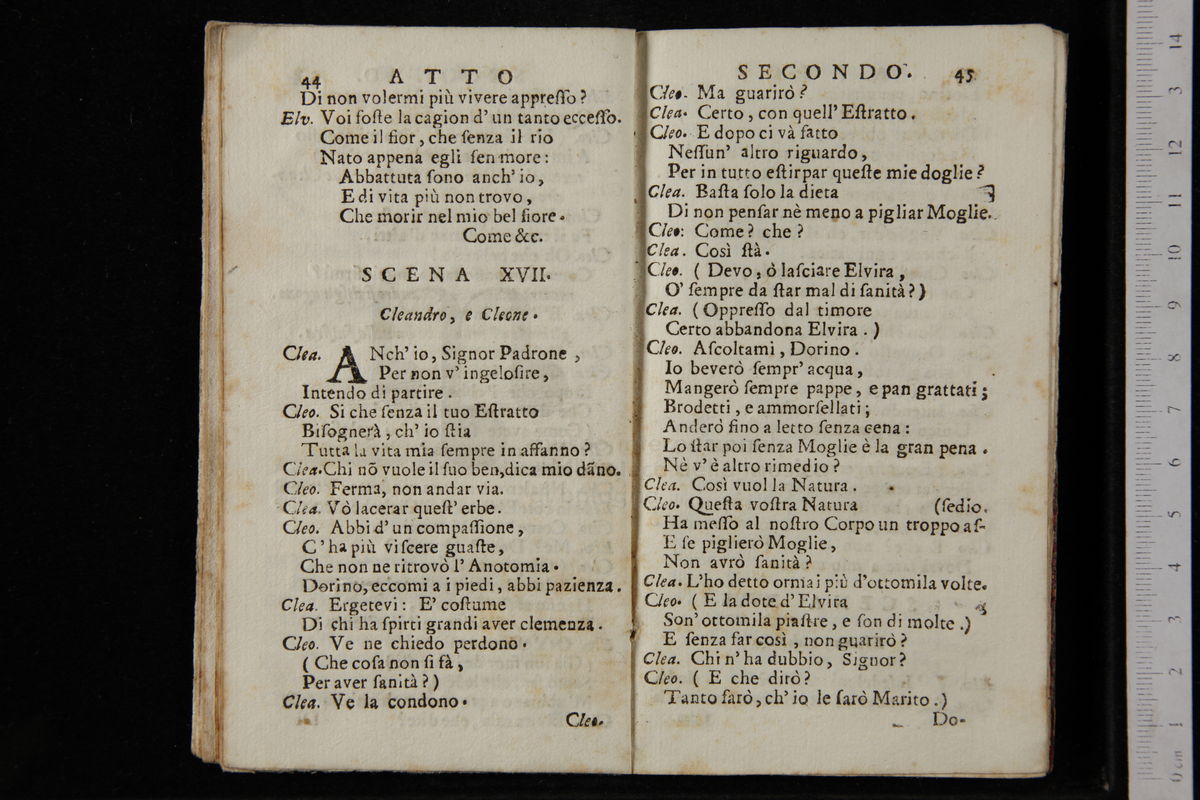 44 ATTO
Di non volermi più vivere appreſſo?
Elv. Voi foſte la cagion d' un tanto ecceſſo.
Come il fior, che ſenza il rio
Nato appena egli ſen more:
Abbattuta ſono anch' io,
E di vita più non trovo,
Che morir nel mio bel fiore.
Come &c.
SCENA XVII.
Cleandro, e Cleone.
Clea. ANch' io, Signor Padrone,
Per non v' ingeloſire,
Intendo di partire.
Cleo. Si che ſenza il tuo Eſtratto
Biſognerà, ch' io ſtia
Tutta la vita mia ſempre in affanno?
Clea. Chi nõ vuole il ſuo ben, dica mio dãno.
Cleo. Ferma, non andar via.
Clea. Vò lacerar queſt' erbe.
Cleo. Abbi d' un compaſſione,
C' ha più viſcere guaſte,
Che non ne ritrovò l' Anotomia.
Dorino, eccomi a i piedi, abbi pazienza.
Clea. Ergetevi: E' coſtume
Di chi ha ſpirti grandi aver clemenza.
Cleo. Ve ne chiedo perdono.
(Che coſa non ſi fà,
Per aver ſanità?)
Clea. Ve la condono.
Cleo.
SECONDO. 45
Cleo. Ma guarirò?
Clea. Certo, con quell' Eſtratto.
Cleo. E dopo ci và fatto
Neſſun' altro riguardo,
Per in tutto eſtirpar queſte mie doglie?
Clea. Baſta ſolo la dieta
Di non penſar nè meno a pigliar Moglie.
Cleo: Come? che?
Clea. Così ſtà.
Cleo. (Devo, ò laſciare Elvira,
O' ſempre da ſtar mal di ſanità?)
Clea. (Oppreſſo dal timore
Certo abbandona Elvira.)
Cleo. Aſcoltami, Dorino.
Io beverò ſempr' acqua,
Mangerò ſempre pappe, e pan grattati;
Brodetti, e ammorſellati;
Anderò fino a letto ſenza cena:
Lo ſtar poi ſenza Moglie è la gran pena.
Nè v' è altro rimedio?
Clea. Così vuol la Natura.
Cleo. Queſta voſtra Natura (ſedio.
Ha meſſo al noſtro Corpo un troppo aſ-
E ſe piglierò Moglie,
Non avrò ſanità?
Clea. L'ho detto ormai più d'ottomila volte.
Cleo. (E la dote d' Elvira
Son' ottomila piaſtre, e ſon di molte.)
E ſenza far così, non guarirò?
Clea. Chi n' ha dubbio, Signor?
Cleo. (E che dirò?
Tanto farò, ch' io le ſarò Marito.)
Do-